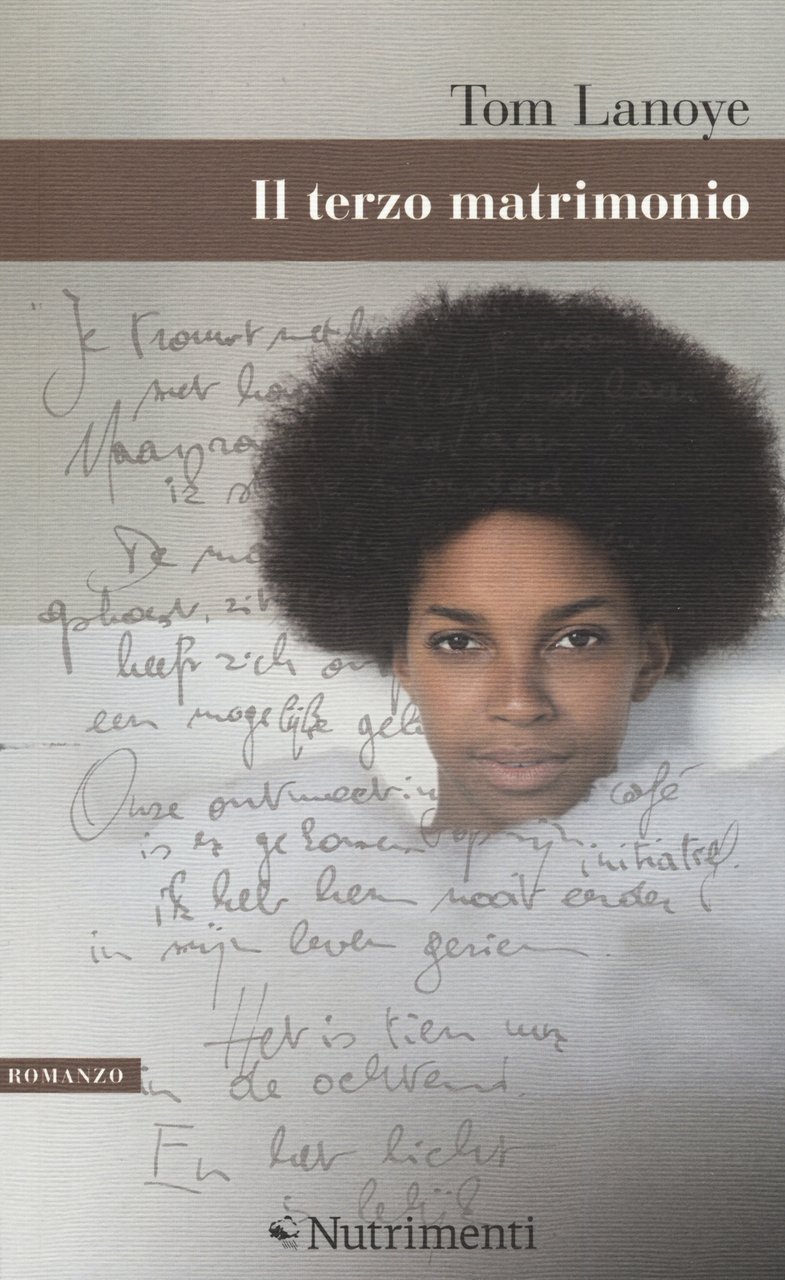 Tom Lanoye
Il terzo matrimonio
Je trouwt met
met
Maar
ik
De
ophoest, zit
heeft zich
een mogelijke
Onze ontmoeting café
is er gekomen op zijn initiatief.
ik heb hem nooit eerder
in mijn leven gezien
Het is tien uur
in de ochtend.
En het licht
is
ROMANZO
Nutrimenti